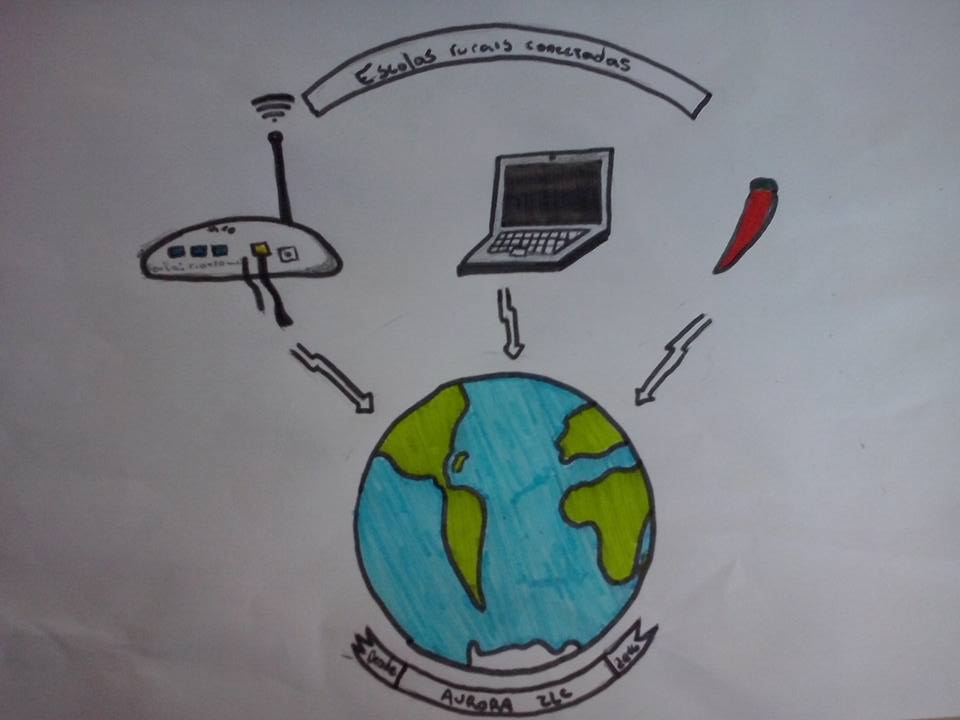 Escolas rurais conectadas
Desde
AURORA
2016